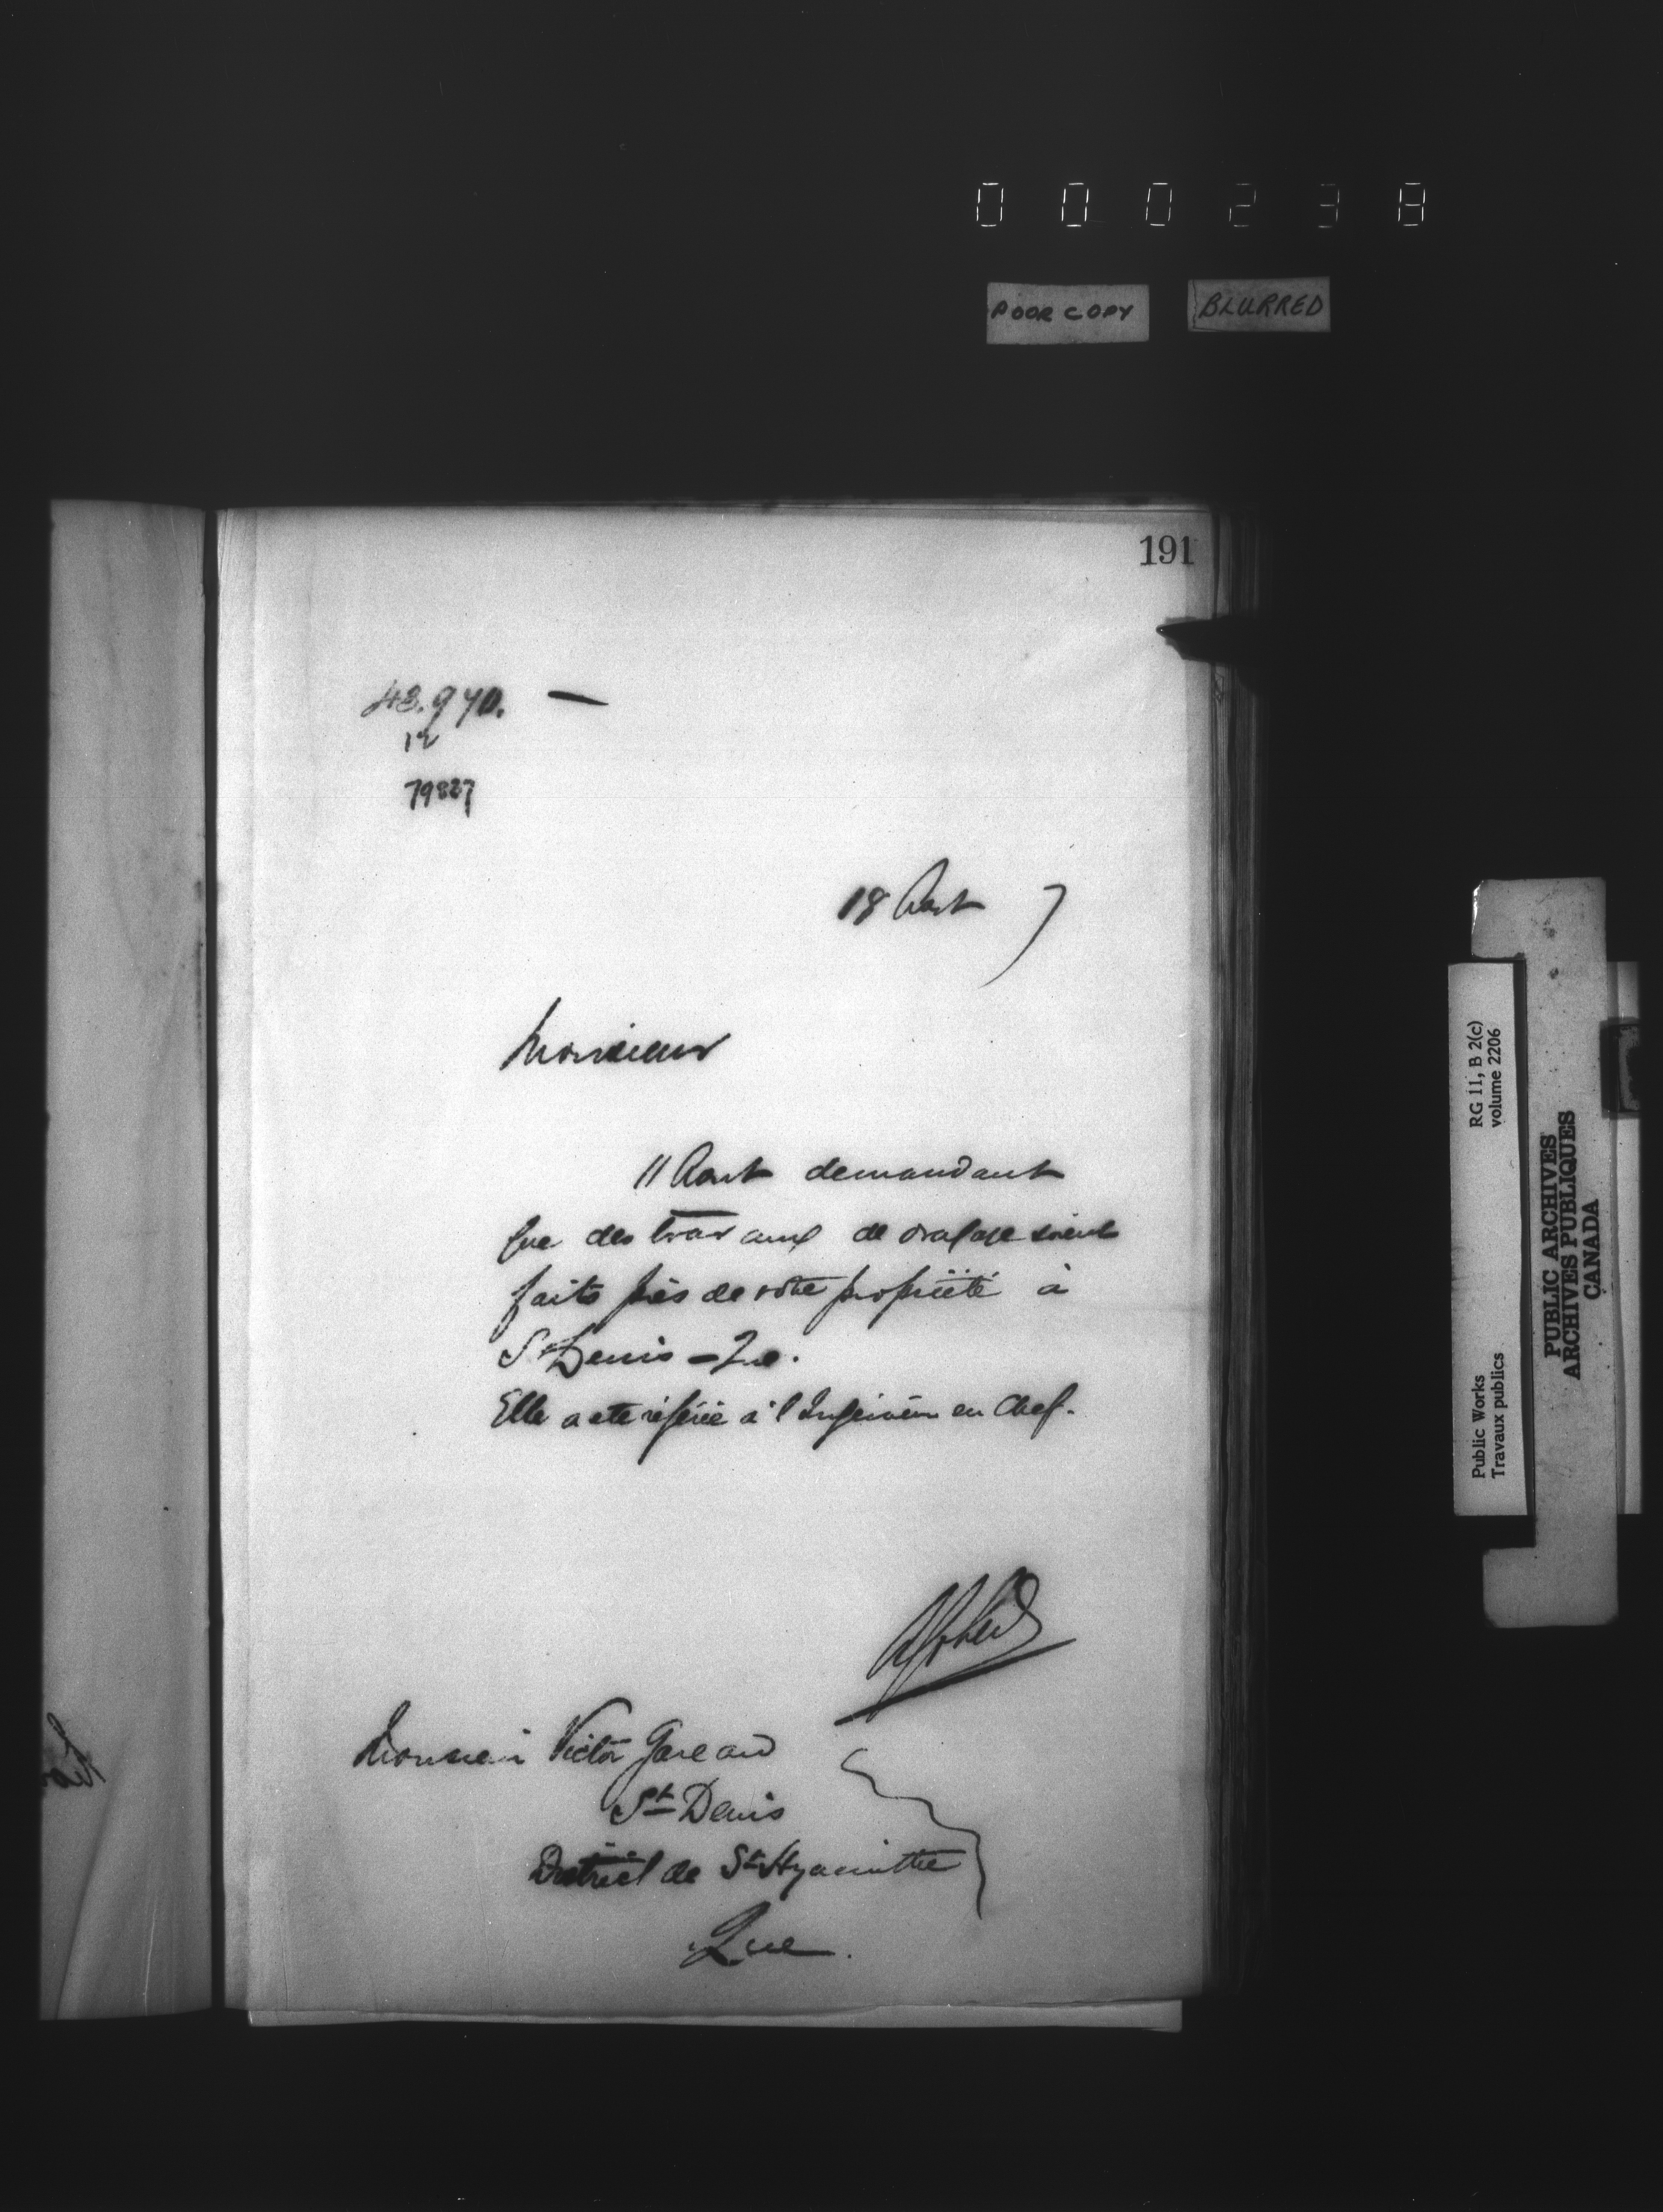 000238
POOR COPY BLURRED
191
43.970. —
12
79827
18 Aout 7
Monsieur
11 Aout demandant
que des travaux de dragage soient
faits près de votre propriété à
St Denis - Que.
Elle a ete référée à l'Ingénieur en Chef.
Monsieur Victor Gareau
St Denis
District de St Hyacinthe
Que.
Public Works RG 11, B 2(c)
Travaux publics volume 2206
PUBLIC ARCHIVES
ARCHIVES PUBLIQUES
CANADA